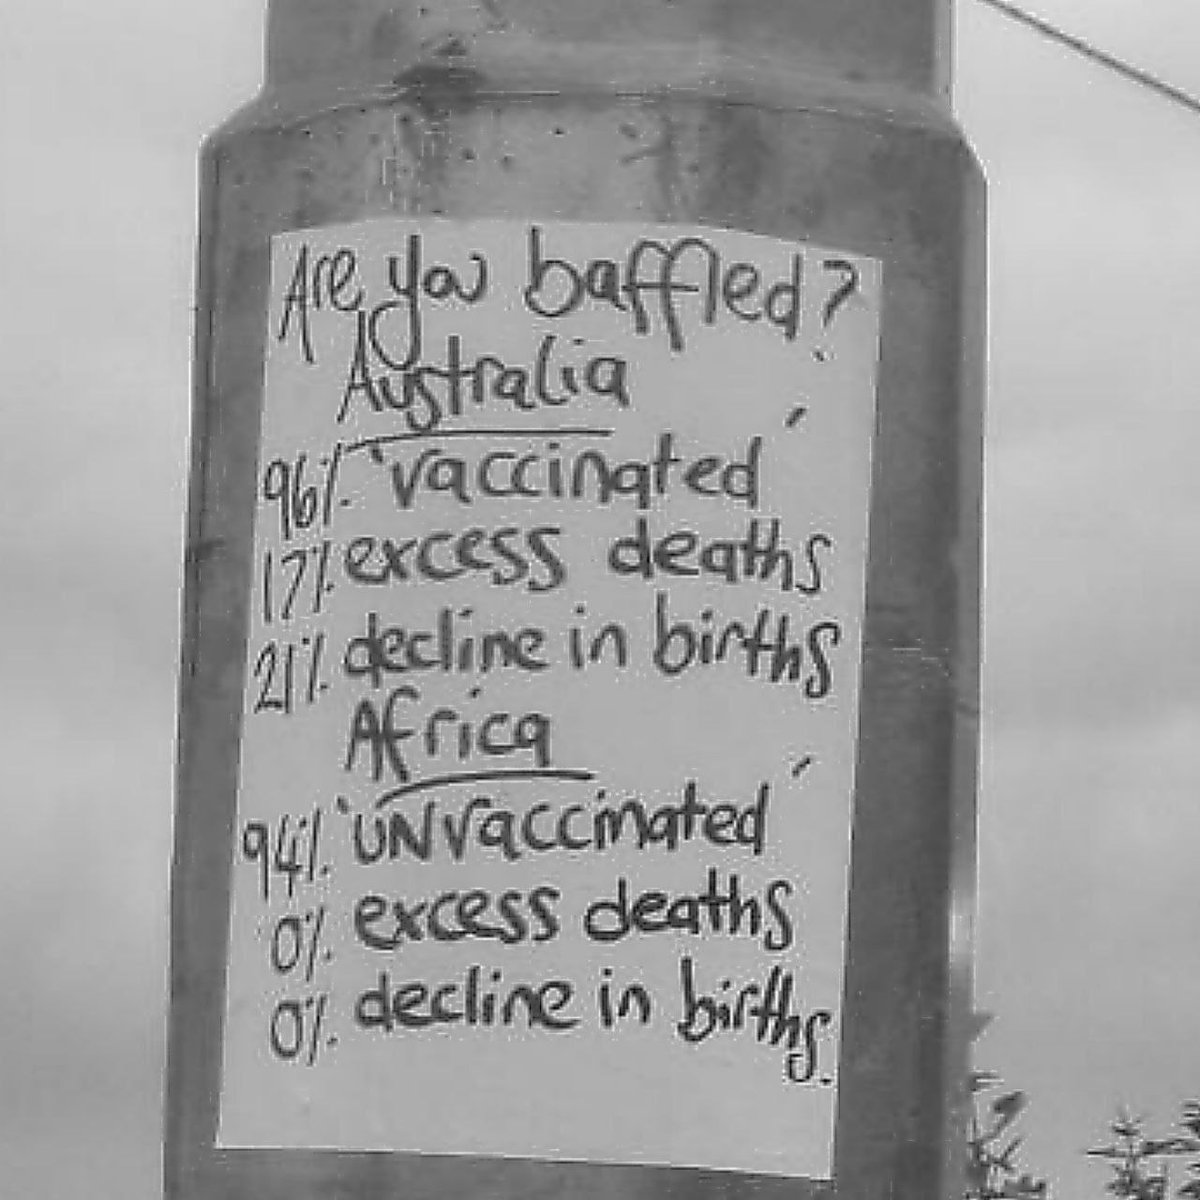 Are you baffled?
Australia
96% 'vaccinated'
17% excess deaths
21% decline in births
Africa
94% 'UNvaccinated'
0% excess deaths
0% decline in births.